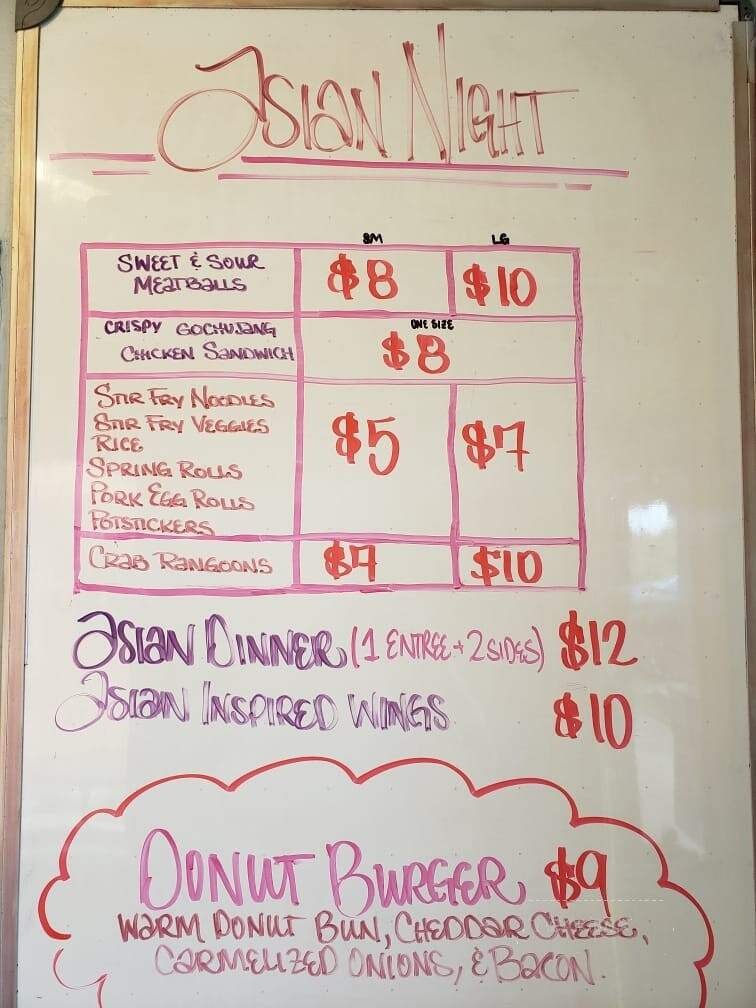 Asian Night
SM LG
Sweet & Sour
Meatballs
$8 $10
Crispy Gochujang
Chicken Sandwich
One Size
$8
Stir Fry Noodles
Stir Fry Veggies
Rice
Spring Rolls
Pork Egg Rolls
Potstickers
$5 $7
Crab Rangoons $7 $10
Asian Dinner (1 Entree + 2 Sides) $12
Asian Inspired Wings $10
Donut Burger $9
Warm Donut Bun, Cheddar Cheese,
Carmelized Onions, & Bacon.